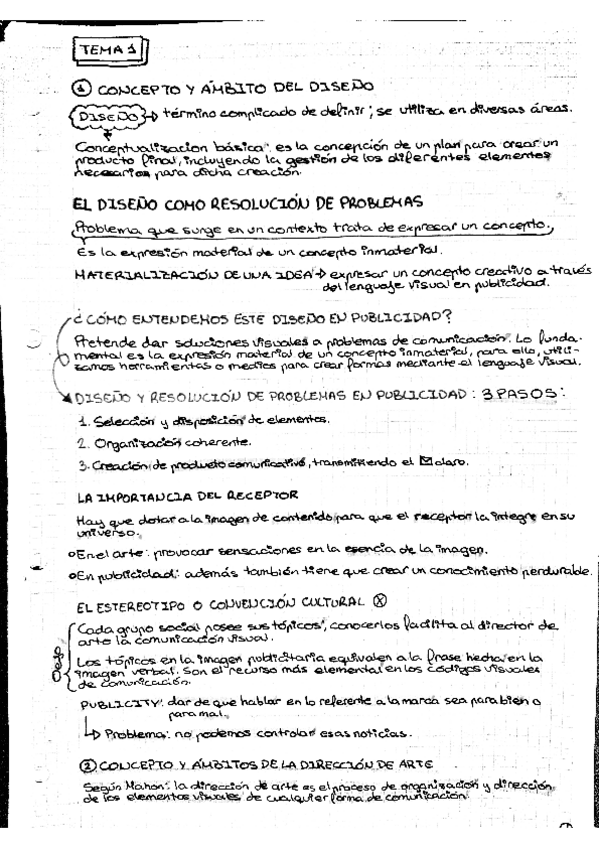 TEMA 1
① CONCEPTO Y ÁMBITO DEL DISEÑO
DISEÑO → término complicado de definir; se utiliza en diversas áreas.
Conceptualización básica: es la concepción de un plan para crear un
producto final, incluyendo la gestión de los diferentes elementos
necesarios para dicha creación.
EL DISEÑO COMO RESOLUCIÓN DE PROBLEMAS
Problema que surge en un contexto trata de expresar un concepto.
Es la expresión material de un concepto inmaterial.
MATERIALIZACIÓN DE UNA IDEA → expresar un concepto creativo a través
del lenguaje visual en publicidad.
¿CÓMO ENTENDEMOS ESTE DISEÑO EN PUBLICIDAD?
Pretende dar soluciones visuales a problemas de comunicación. Lo funda-
mental es la expresión material de un concepto inmaterial, para ello, utili-
zamos herramientas o medios para crear formas mediante el lenguaje visual.
DISEÑO Y RESOLUCIÓN DE PROBLEMAS EN PUBLICIDAD: 3 PASOS:
1. Selección y disposición de elementos.
2. Organización coherente.
3. Creación de producto comunicativo, transmitiendo el ✉ claro.
LA IMPORTANCIA DEL RECEPTOR
Hay que dotar a la imagen de contenido para que el receptor la integre en su
universo.
○ En el arte: provocar sensaciones en la esencia de la imagen.
○ En publicidad: además también tiene que crear un conocimiento perdurable.
EL ESTEREOTIPO O CONVENCIÓN CULTURAL ⊗
Cada grupo social posee sus tópicos, conocerlos facilita al director de
arte la comunicación visual.
Los tópicos en la imagen publicitaria equivalen a la frase hecha en la
imagen verbal. Son el recurso más elemental en los códigos visuales
de comunicación.
PUBLICITY: dar de que hablar en lo referente a la marca sea para bien o
para mal.
↳ Problema: no podemos controlar esas noticias.
② CONCEPTO Y ÁMBITOS DE LA DIRECCIÓN DE ARTE
Según Mahon: la dirección de arte es el proceso de organización y dirección
de los elementos visuales de cualquier forma de comunicación.